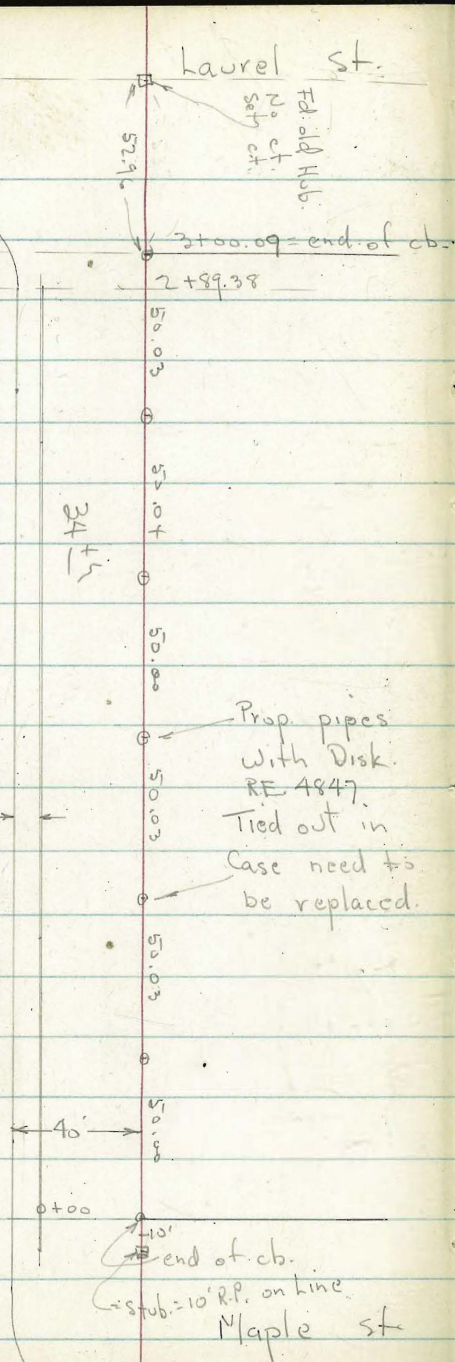 Laurel St.
Fd. old Hub.
No ct.
Set ct.
52.96
3+00.09 = end of cb.
2+89.38
50.03
50.04
34 ±
50.00
Prop. pipes
With Disk.
RE 4847
Tied out in
Case need to
be replaced.
50.03
50.03
50.00
40'
0+00
10'
end of cb.
stub. = 10' R.P. on Line
Maple St